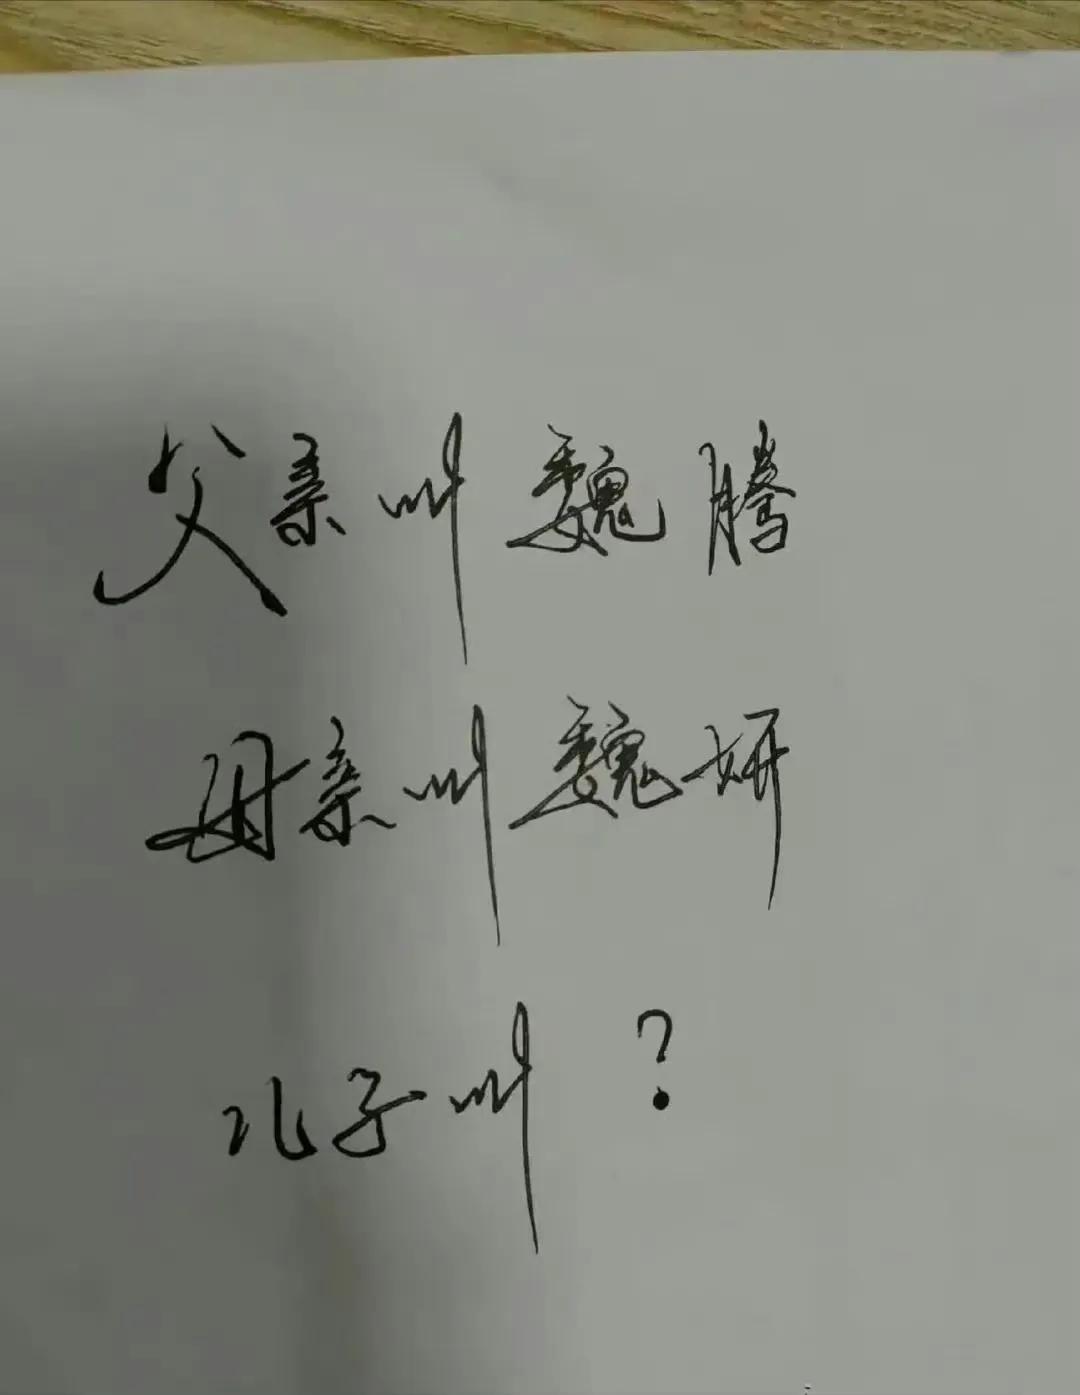 父亲叫魏腾
母亲叫魏妍
儿子叫?